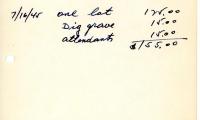 7/16/45 one lot 125.00
Dig grave 15.00
attendants 15.00
$155.00